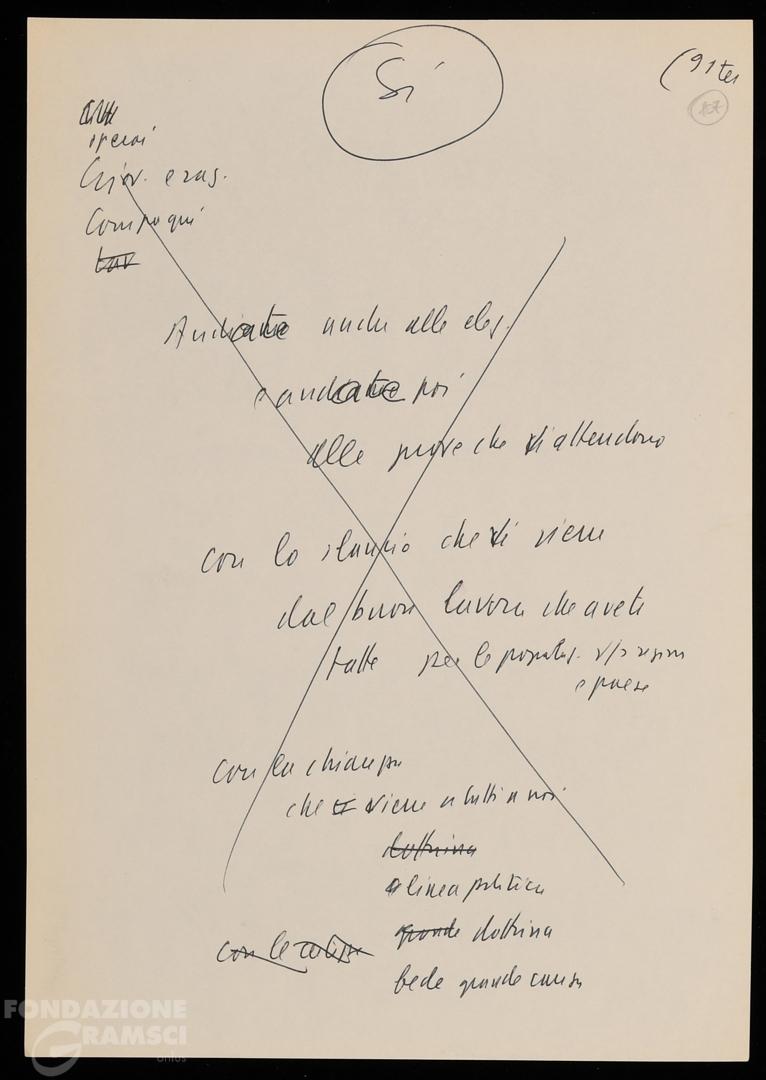 Sì
(91 ter
operai
Giov. e rag.
Compagni
Andiate anche alle elez.
e andiate poi
alle prove che vi attendono
con lo slancio che vi viene
dal buon lavoro che avete
fatto per le popolaz. v/s regioni
e paese
con la chiarezza
che vi viene a tutti a noi
dottrina
linea politica
grande dottrina
con le
fede grande causa
FONDAZIONE
GRAMSCI
onlus